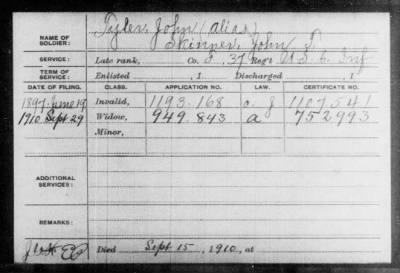 NAME OF SOLDIER: Tyler, John (alias)
Skinner, John T.
SERVICE: Late rank, Co. F, 37 Reg't U.S.C. Inf
TERM OF SERVICE: Enlisted , 1 Discharged , 1
DATE OF FILING. CLASS. APPLICATION NO. LAW. CERTIFICATE NO.
1897 June 19 Invalid, 1193.168 1107541
1910 Sept 29 Widow, 949.843 a 752993
Minor,
ADDITIONAL SERVICES:
REMARKS:
Died Sept 15, 1910, at